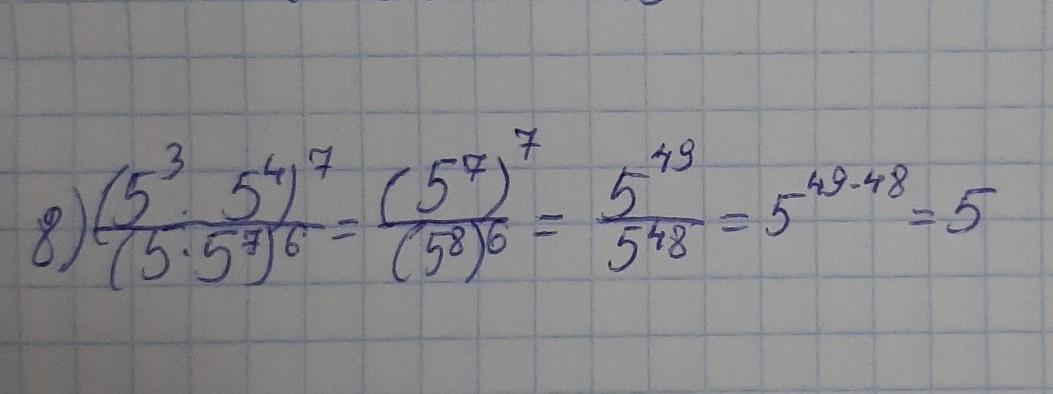 8) (5³ · 5⁴)⁷ / (5 · 5⁷)⁶ = (5⁷)⁷ / (5⁸)⁶ = 5⁴⁹ / 5⁴⁸ = 5⁴⁹⁻⁴⁸ = 5